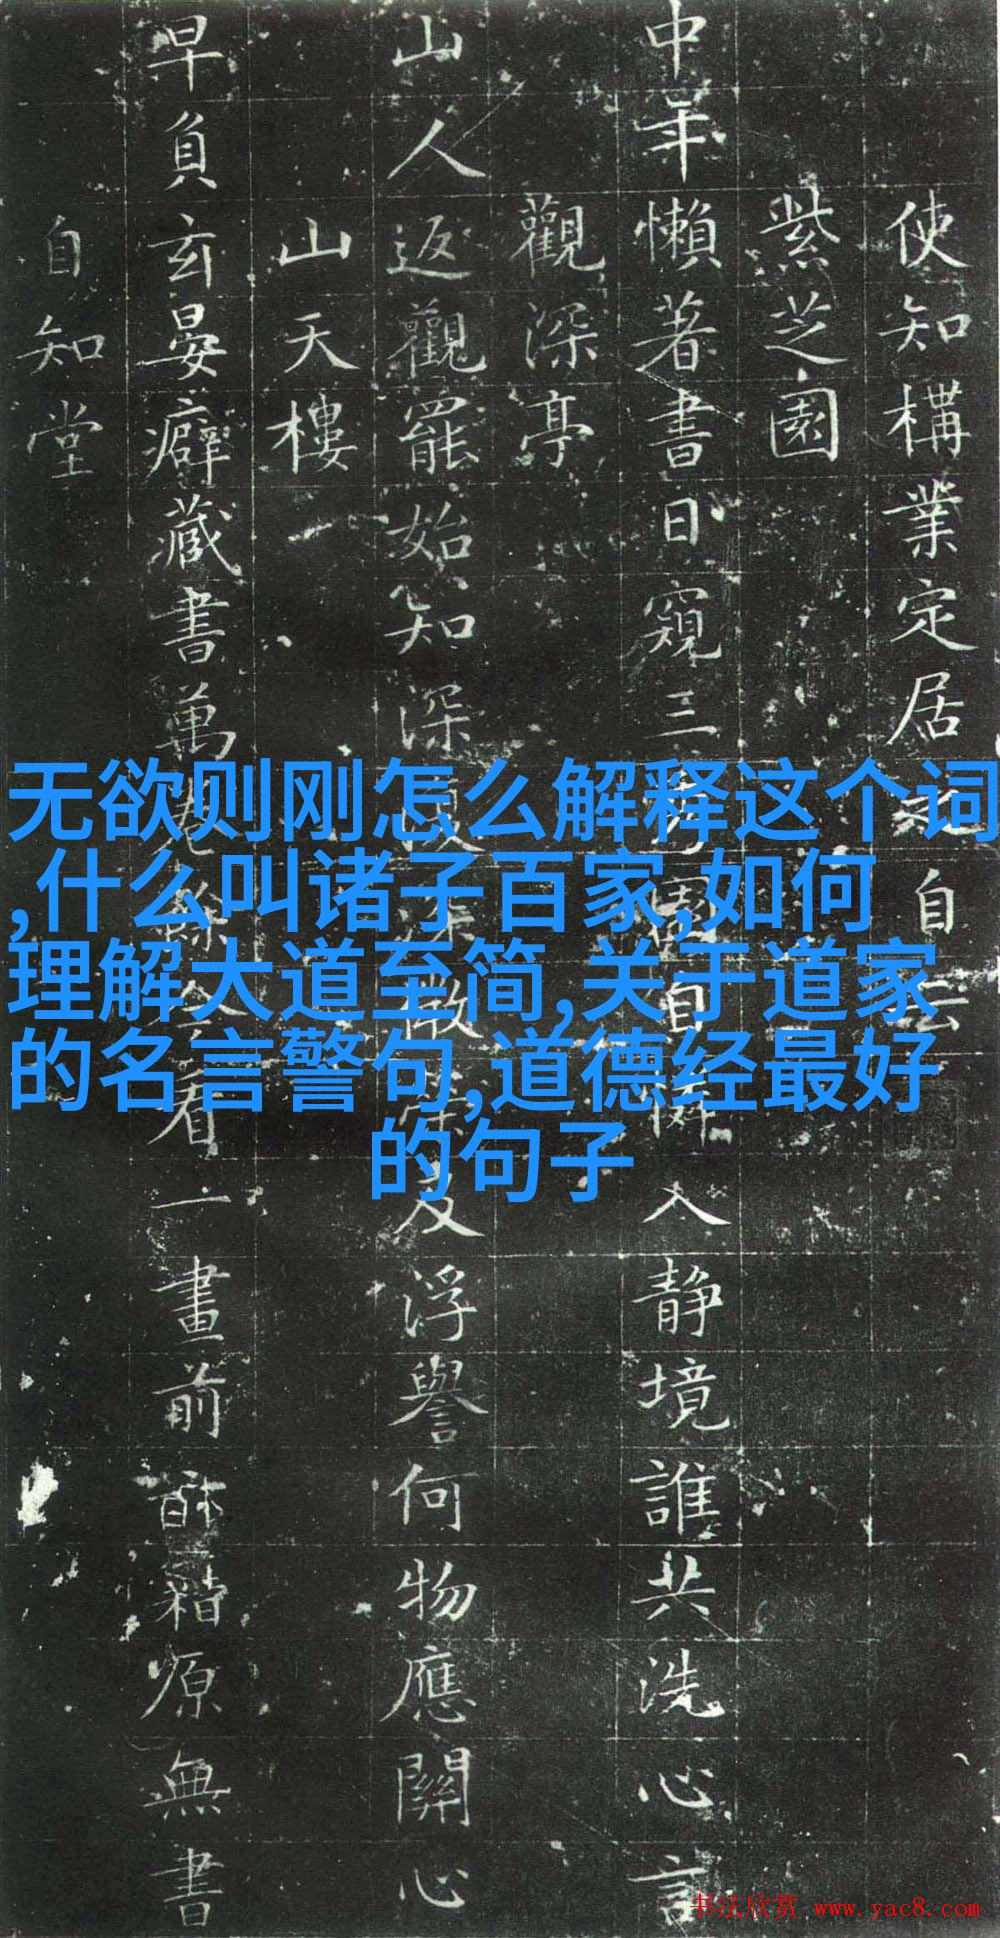 使知構業定居自云
紫芝園
中年懶著書日窺三園自入靜境誰共洗心言
觀深亭
山人返觀罷始知深及浮譽何物應關心
山天樓
早負玄晏癖藏書萬看一畫前籍原無書
自知堂
无欲则刚怎么解释这个词
,什么叫诸子百家,如何
理解大道至简,关于道家
的名言警句,道德经最好
的句子
书法欣赏 www.yac8.com